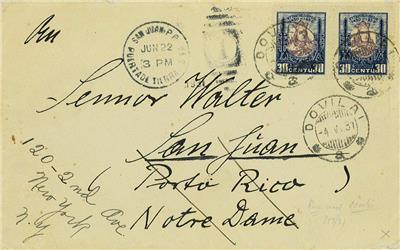 An
SAN JUAN P.R.
JUN 22
3 PM
PUERTA DE TIERRA
30 CENTŲ 30
30 CENTŲ 30
DOVILAI
DOVILAI
Sennor Walter
San Juan
(Porto Rico)
Notre Dame
120-2nd Ave.
New York
N.Y.